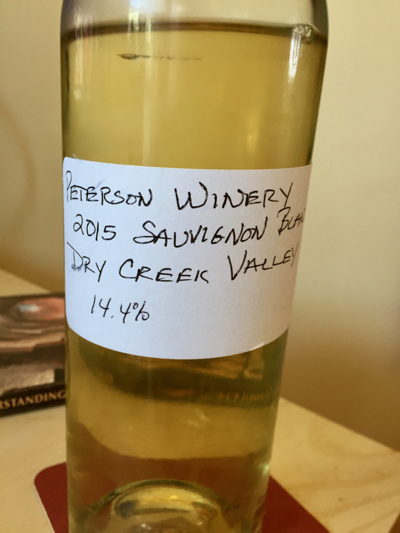 PETERSON WINERY
2015 SAUVIGNON BLA
DRY CREEK VALLEY
14.4%
RSTANDING